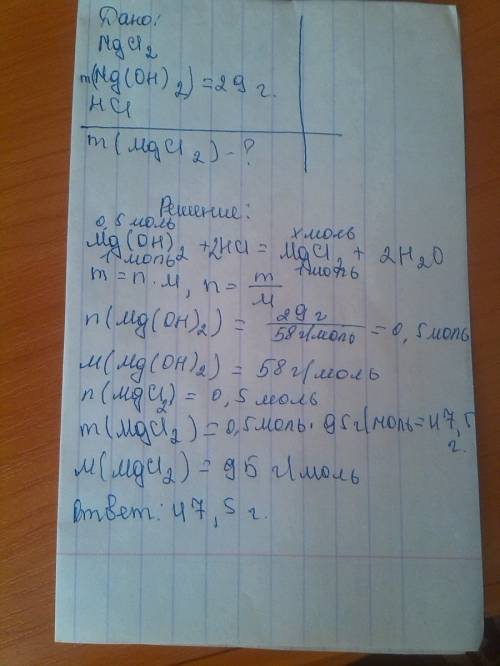 Дано:
MgCl2
m(Mg(OH)2) = 29 г.
HCl
m(MgCl2) - ?
Решение:
0,5 моль х моль
Mg(OH)2 + 2HCl = MgCl2 + 2H2O
1 моль 1 моль
m = n · M, n = m/M
n(Mg(OH)2) = 29 г/58 г/моль = 0,5 моль
M(Mg(OH)2) = 58 г/моль
n(MgCl2) = 0,5 моль
m(MgCl2) = 0,5 моль · 95 г/моль = 47,5 г.
M(MgCl2) = 95 г/моль
Ответ: 47,5 г.